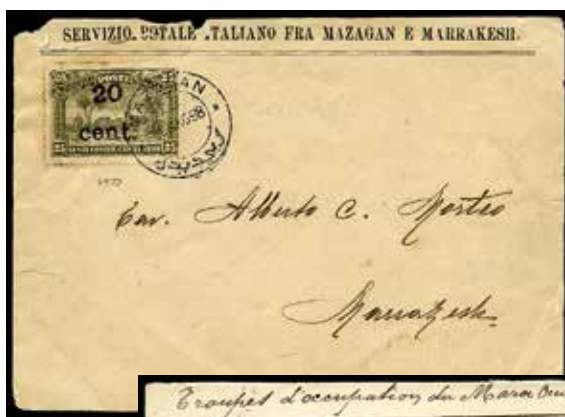 SERVIZIO POSTALE ITALIANO FRA MAZAGAN E MARRAKESH.
20
cent.
25 25
Cav. Alberto C. Morteo
Marrakesh
Troupes d'occupation du Maroc